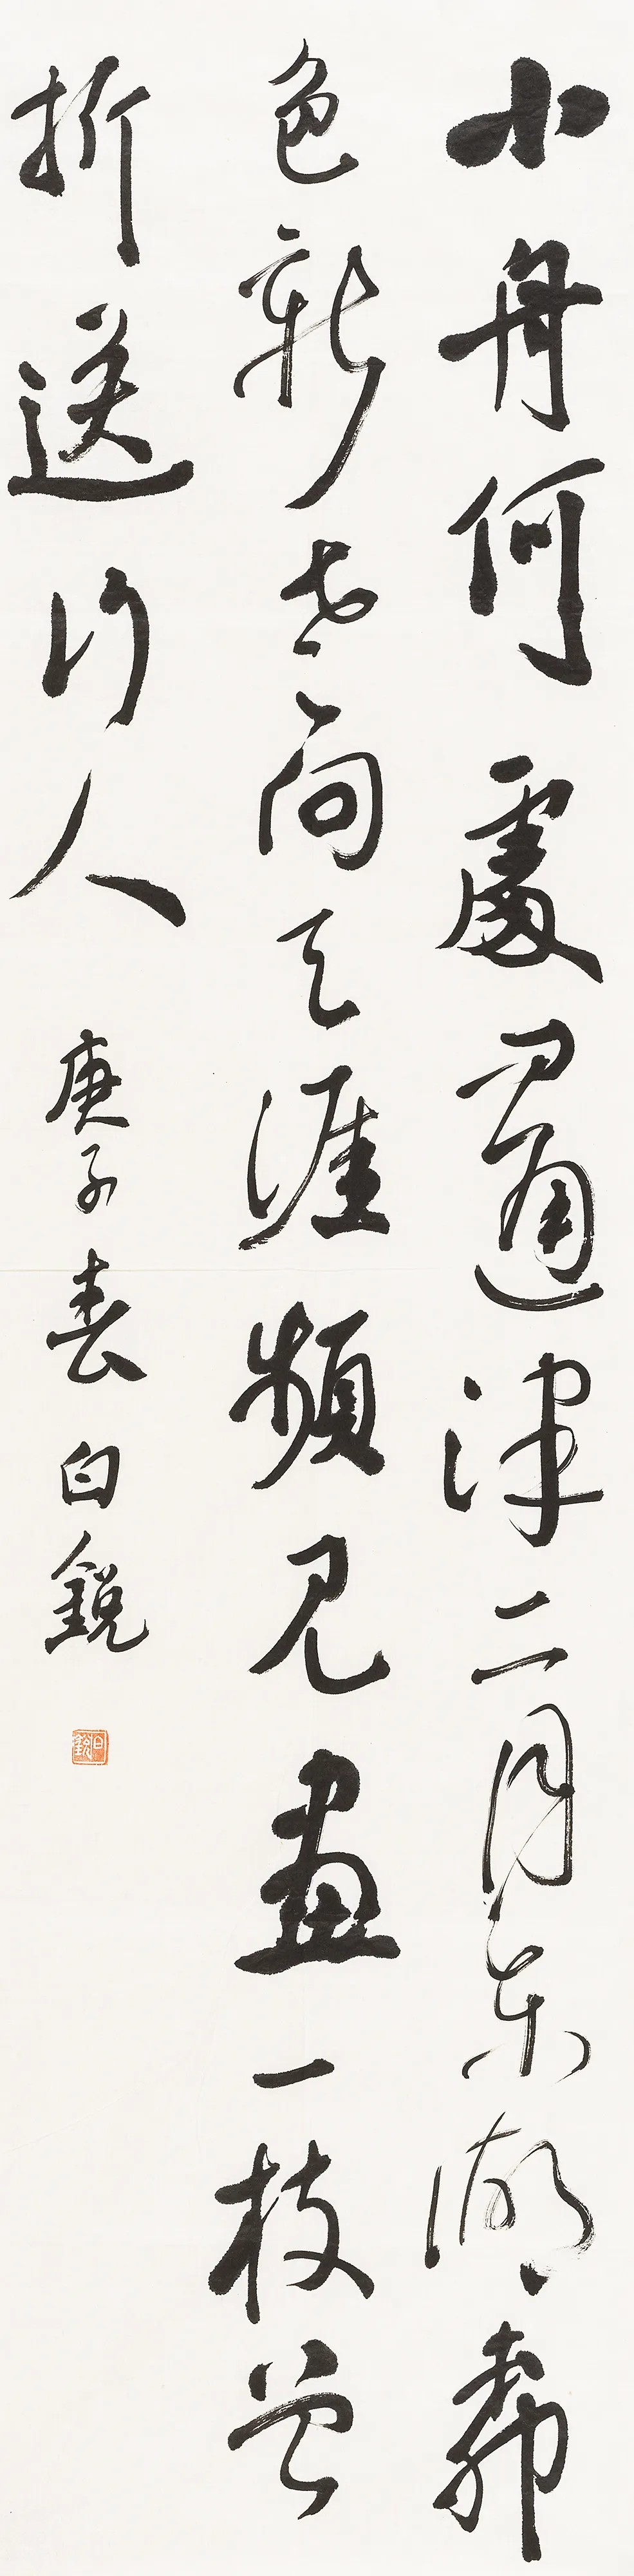 小舟何處問通津二月東湖柳
色新老向天涯頻見畫一枝曾
折送行人
庚子春 白銳
白銳